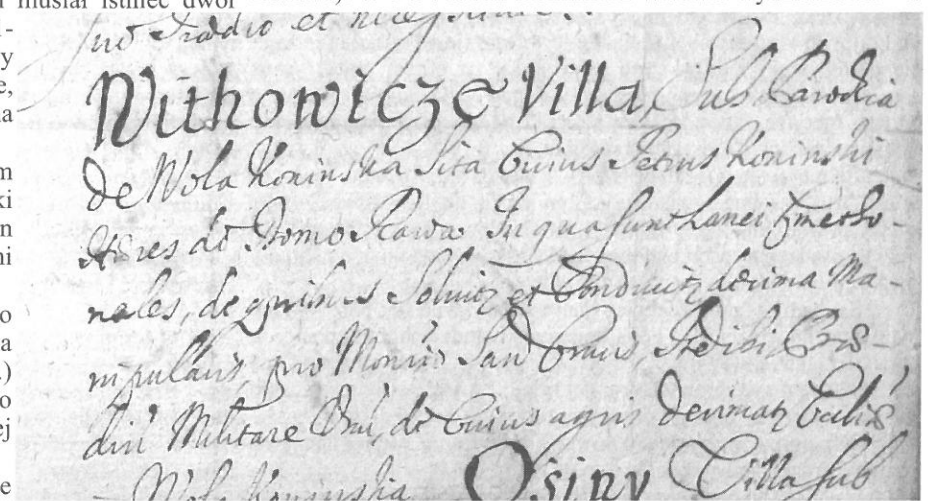 ı musiał istnieć dwór
-
y
e,
m
ki
n
ni
o
a
.)
o
ej
e
pro Prædio et
Withowicze Villa, Sub Parochia
de Wola Koninska Sita Cuius Petrus Koninski
Heres de Domo Rawa In qua sunt Lanei Cmetho-
nales, de quibus Soluitz et Conducitz decima Ma-
nipularis, pro Monrio San Crucis, Ibi
diu Militare de Cuius agris decimatz
Wola Koninska Osiny Villa sub